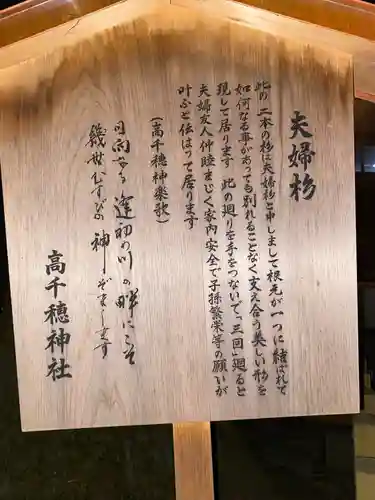 夫婦杉
此の二本の杉は夫婦杉と申しまして根元が一つに結ばれて
如何なる事があっても別れることなく支え合う美しい形を
現して居ります 此の廻りを手をつないで「三回」廻ると
夫婦友人仲睦まじく家内安全で子孫繁栄等の願いが
叶ふと伝はって居ります
（高千穂神楽歌）
日向なる逢初の川の畔にこそ
幾世むすびの神ぞまします
高千穂神社